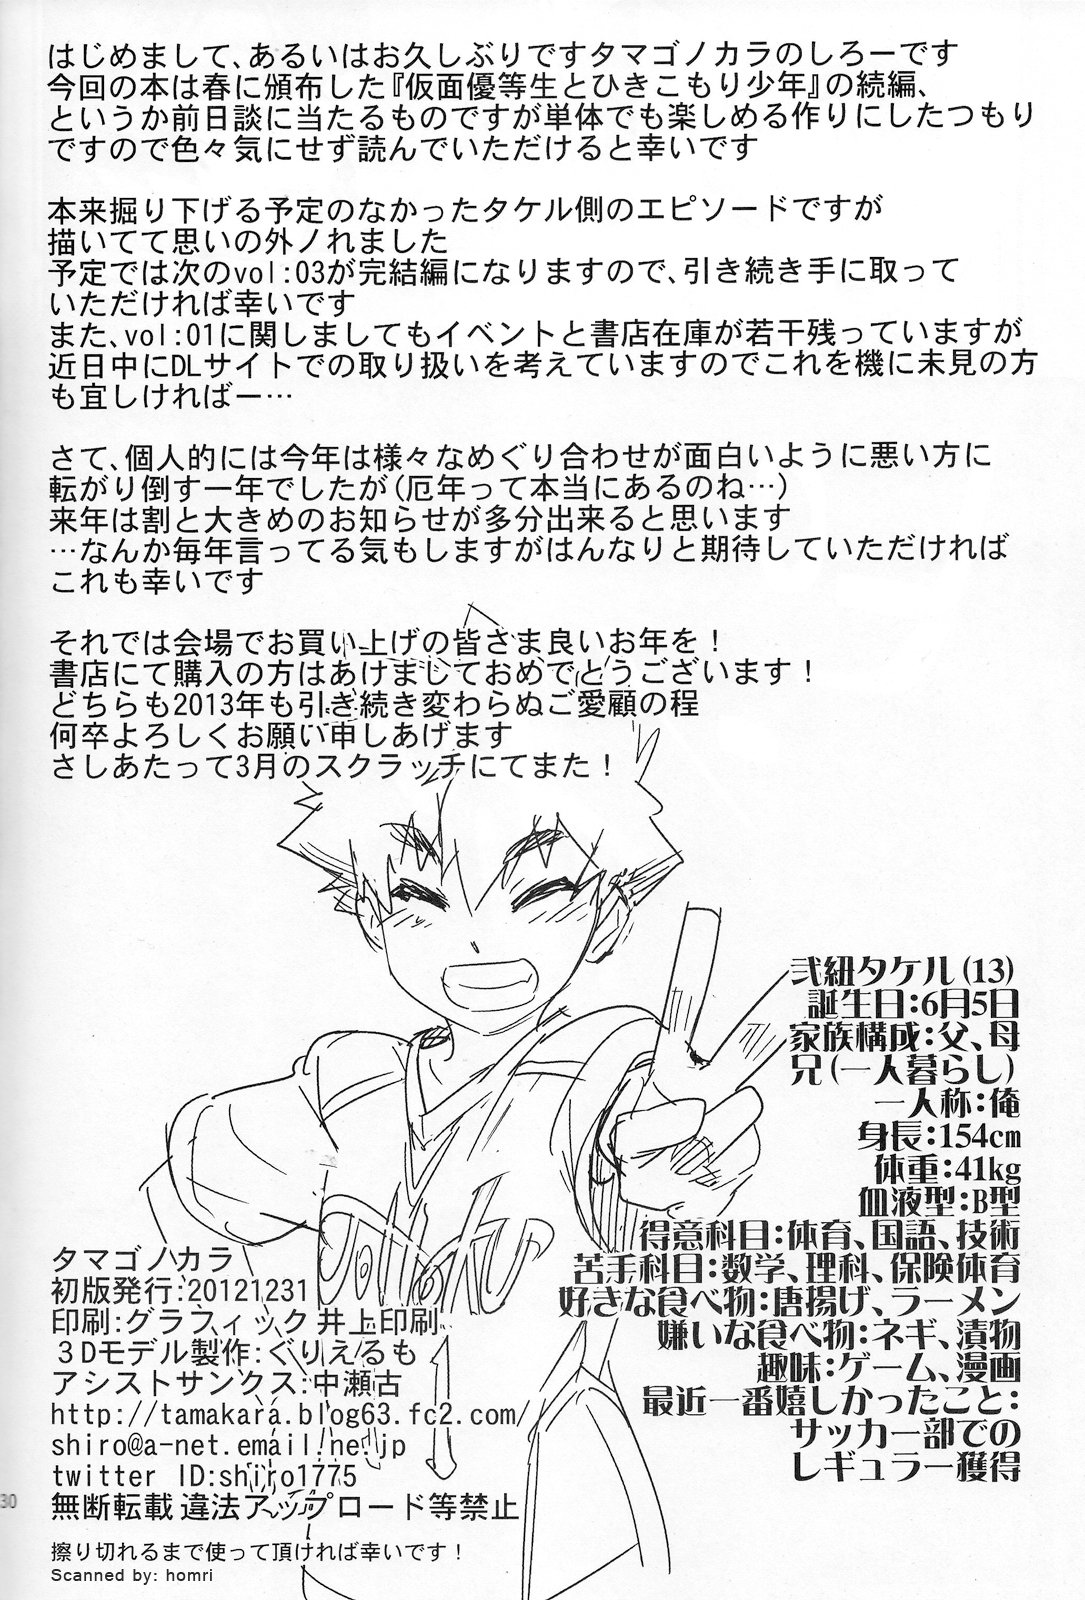 はじめまして､あるいはお久しぶりですタマゴノカラのしろーです
今回の本は春に頒布した『仮面優等生とひきこもり少年』の続編､
というか前日談に当たるものですが単体でも楽しめる作りにしたつもり
ですので色々気にせず読んでいただけると幸いです
本来掘り下げる予定のなかったタケル側のエピソードですが
描いてて思いの外ノれました
予定では次のvol:03が完結編になりますので､引き続き手に取って
いただければ幸いです
また､vol:01に関しましてもイベントと書店在庫が若干残っていますが
近日中にDLサイトでの取り扱いを考えていますのでこれを機に未見の方
も宜しければー…
さて､個人的には今年は様々なめぐり合わせが面白いように悪い方に
転がり倒す一年でしたが(厄年って本当にあるのね…)
来年は割と大きめのお知らせが多分出来ると思います
…なんか毎年言ってる気もしますがはんなりと期待していただければ
これも幸いです
それでは会場でお買い上げの皆さま良いお年を！
書店にて購入の方はあけましておめでとうございます！
どちらも2013年も引き続き変わらぬご愛顧の程
何卒よろしくお願い申しあげます
さしあたって3月のスクラッチにてまた！
弐紐タケル(13)
誕生日:6月5日
家族構成:父､母
兄(一人暮らし)
一人称:俺
身長:154cm
体重:41kg
血液型:B型
得意科目:体育､国語､技術
苦手科目:数学､理科､保険体育
好きな食べ物:唐揚げ､ラーメン
嫌いな食べ物:ネギ､漬物
趣味:ゲーム､漫画
最近一番嬉しかったこと:
サッカー部での
レギュラー獲得
タマゴノカラ
初版発行:20121231
印刷:グラフィック 井上印刷
３Dモデル製作:ぐりえるも
アシストサンクス:中瀬古
http://tamakara.blog63.fc2.com/
shiro@a-net.email.ne.jp
twitter ID:shiro1775
無断転載 違法アップロード等禁止
30
擦り切れるまで使って頂ければ幸いです！
Scanned by: homri